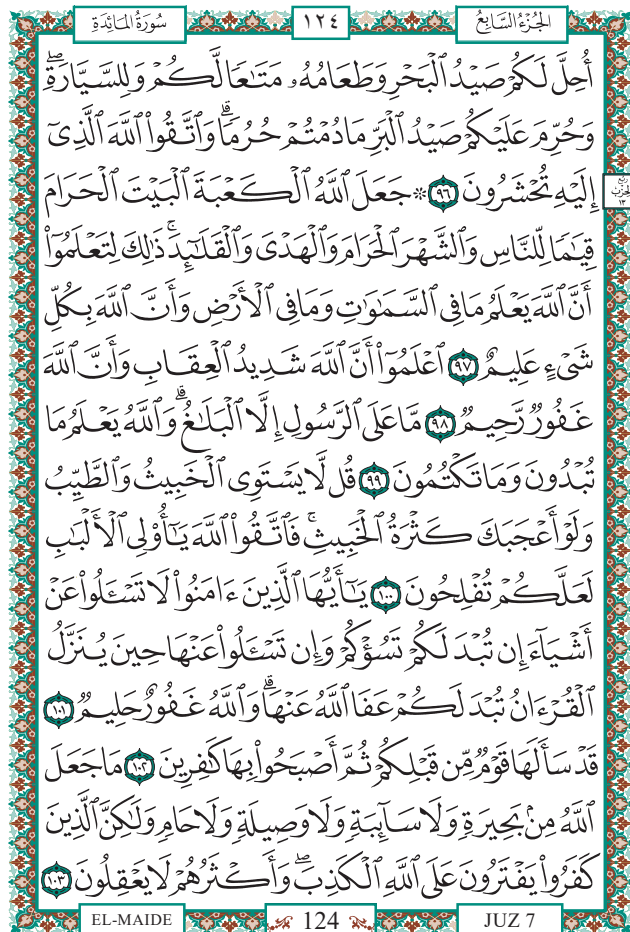 سُورَةُ المَائدَةِ
١٢٤
الجُزْءُ السَّابِعُ
أُحِلَّ لَكُمۡ صَيۡدُ ٱلۡبَحۡرِ وَطَعَامُهُۥ مَتَٰعٗا لَّكُمۡ وَلِلسَّيَّارَةِۖ
وَحُرِّمَ عَلَيۡكُمۡ صَيۡدُ ٱلۡبَرِّ مَا دُمۡتُمۡ حُرُمٗاۗ وَٱتَّقُواْ ٱللَّهَ ٱلَّذِيٓ
إِلَيۡهِ تُحۡشَرُونَ ٩٦ ۞ جَعَلَ ٱللَّهُ ٱلۡكَعۡبَةَ ٱلۡبَيۡتَ ٱلۡحَرَامَ
ربع
الحزب
١٣
قِيَٰمٗا لِّلنَّاسِ وَٱلشَّهۡرَ ٱلۡحَرَامَ وَٱلۡهَدۡيَ وَٱلۡقَلَٰٓئِدَۚ ذَٰلِكَ لِتَعۡلَمُوٓاْ
أَنَّ ٱللَّهَ يَعۡلَمُ مَا فِي ٱلسَّمَٰوَٰتِ وَمَا فِي ٱلۡأَرۡضِ وَأَنَّ ٱللَّهَ بِكُلِّ
شَيۡءٍ عَلِيمٌ ٩٧ ٱعۡلَمُوٓاْ أَنَّ ٱللَّهَ شَدِيدُ ٱلۡعِقَابِ وَأَنَّ ٱللَّهَ
غَفُورٞ رَّحِيمٞ ٩٨ مَّا عَلَى ٱلرَّسُولِ إِلَّا ٱلۡبَلَٰغُۗ وَٱللَّهُ يَعۡلَمُ مَا
تُبۡدُونَ وَمَا تَكۡتُمُونَ ٩٩ قُل لَّا يَسۡتَوِي ٱلۡخَبِيثُ وَٱلطَّيِّبُ
وَلَوۡ أَعۡجَبَكَ كَثۡرَةُ ٱلۡخَبِيثِۚ فَٱتَّقُواْ ٱللَّهَ يَٰٓأُوْلِي ٱلۡأَلۡبَٰبِ
لَعَلَّكُمۡ تُفۡلِحُونَ ١٠٠ يَٰٓأَيُّهَا ٱلَّذِينَ ءَامَنُواْ لَا تَسۡـَٔلُواْ عَنۡ
أَشۡيَآءَ إِن تُبۡدَ لَكُمۡ تَسُؤۡكُمۡ وَإِن تَسۡـَٔلُواْ عَنۡهَا حِينَ يُنَزَّلُ
ٱلۡقُرۡءَانُ تُبۡدَ لَكُمۡ عَفَا ٱللَّهُ عَنۡهَاۗ وَٱللَّهُ غَفُورٌ حَلِيمٞ ١٠١
قَدۡ سَأَلَهَا قَوۡمٞ مِّن قَبۡلِكُمۡ ثُمَّ أَصۡبَحُواْ بِهَا كَٰفِرِينَ ١٠٢ مَا جَعَلَ
ٱللَّهُ مِنۢ بَحِيرَةٖ وَلَا سَآئِبَةٖ وَلَا وَصِيلَةٖ وَلَا حَامٖ وَلَٰكِنَّ ٱلَّذِينَ
كَفَرُواْ يَفۡتَرُونَ عَلَى ٱللَّهِ ٱلۡكَذِبَۖ وَأَكۡثَرُهُمۡ لَا يَعۡقِلُونَ ١٠٣
EL-MAIDE
124
JUZ 7